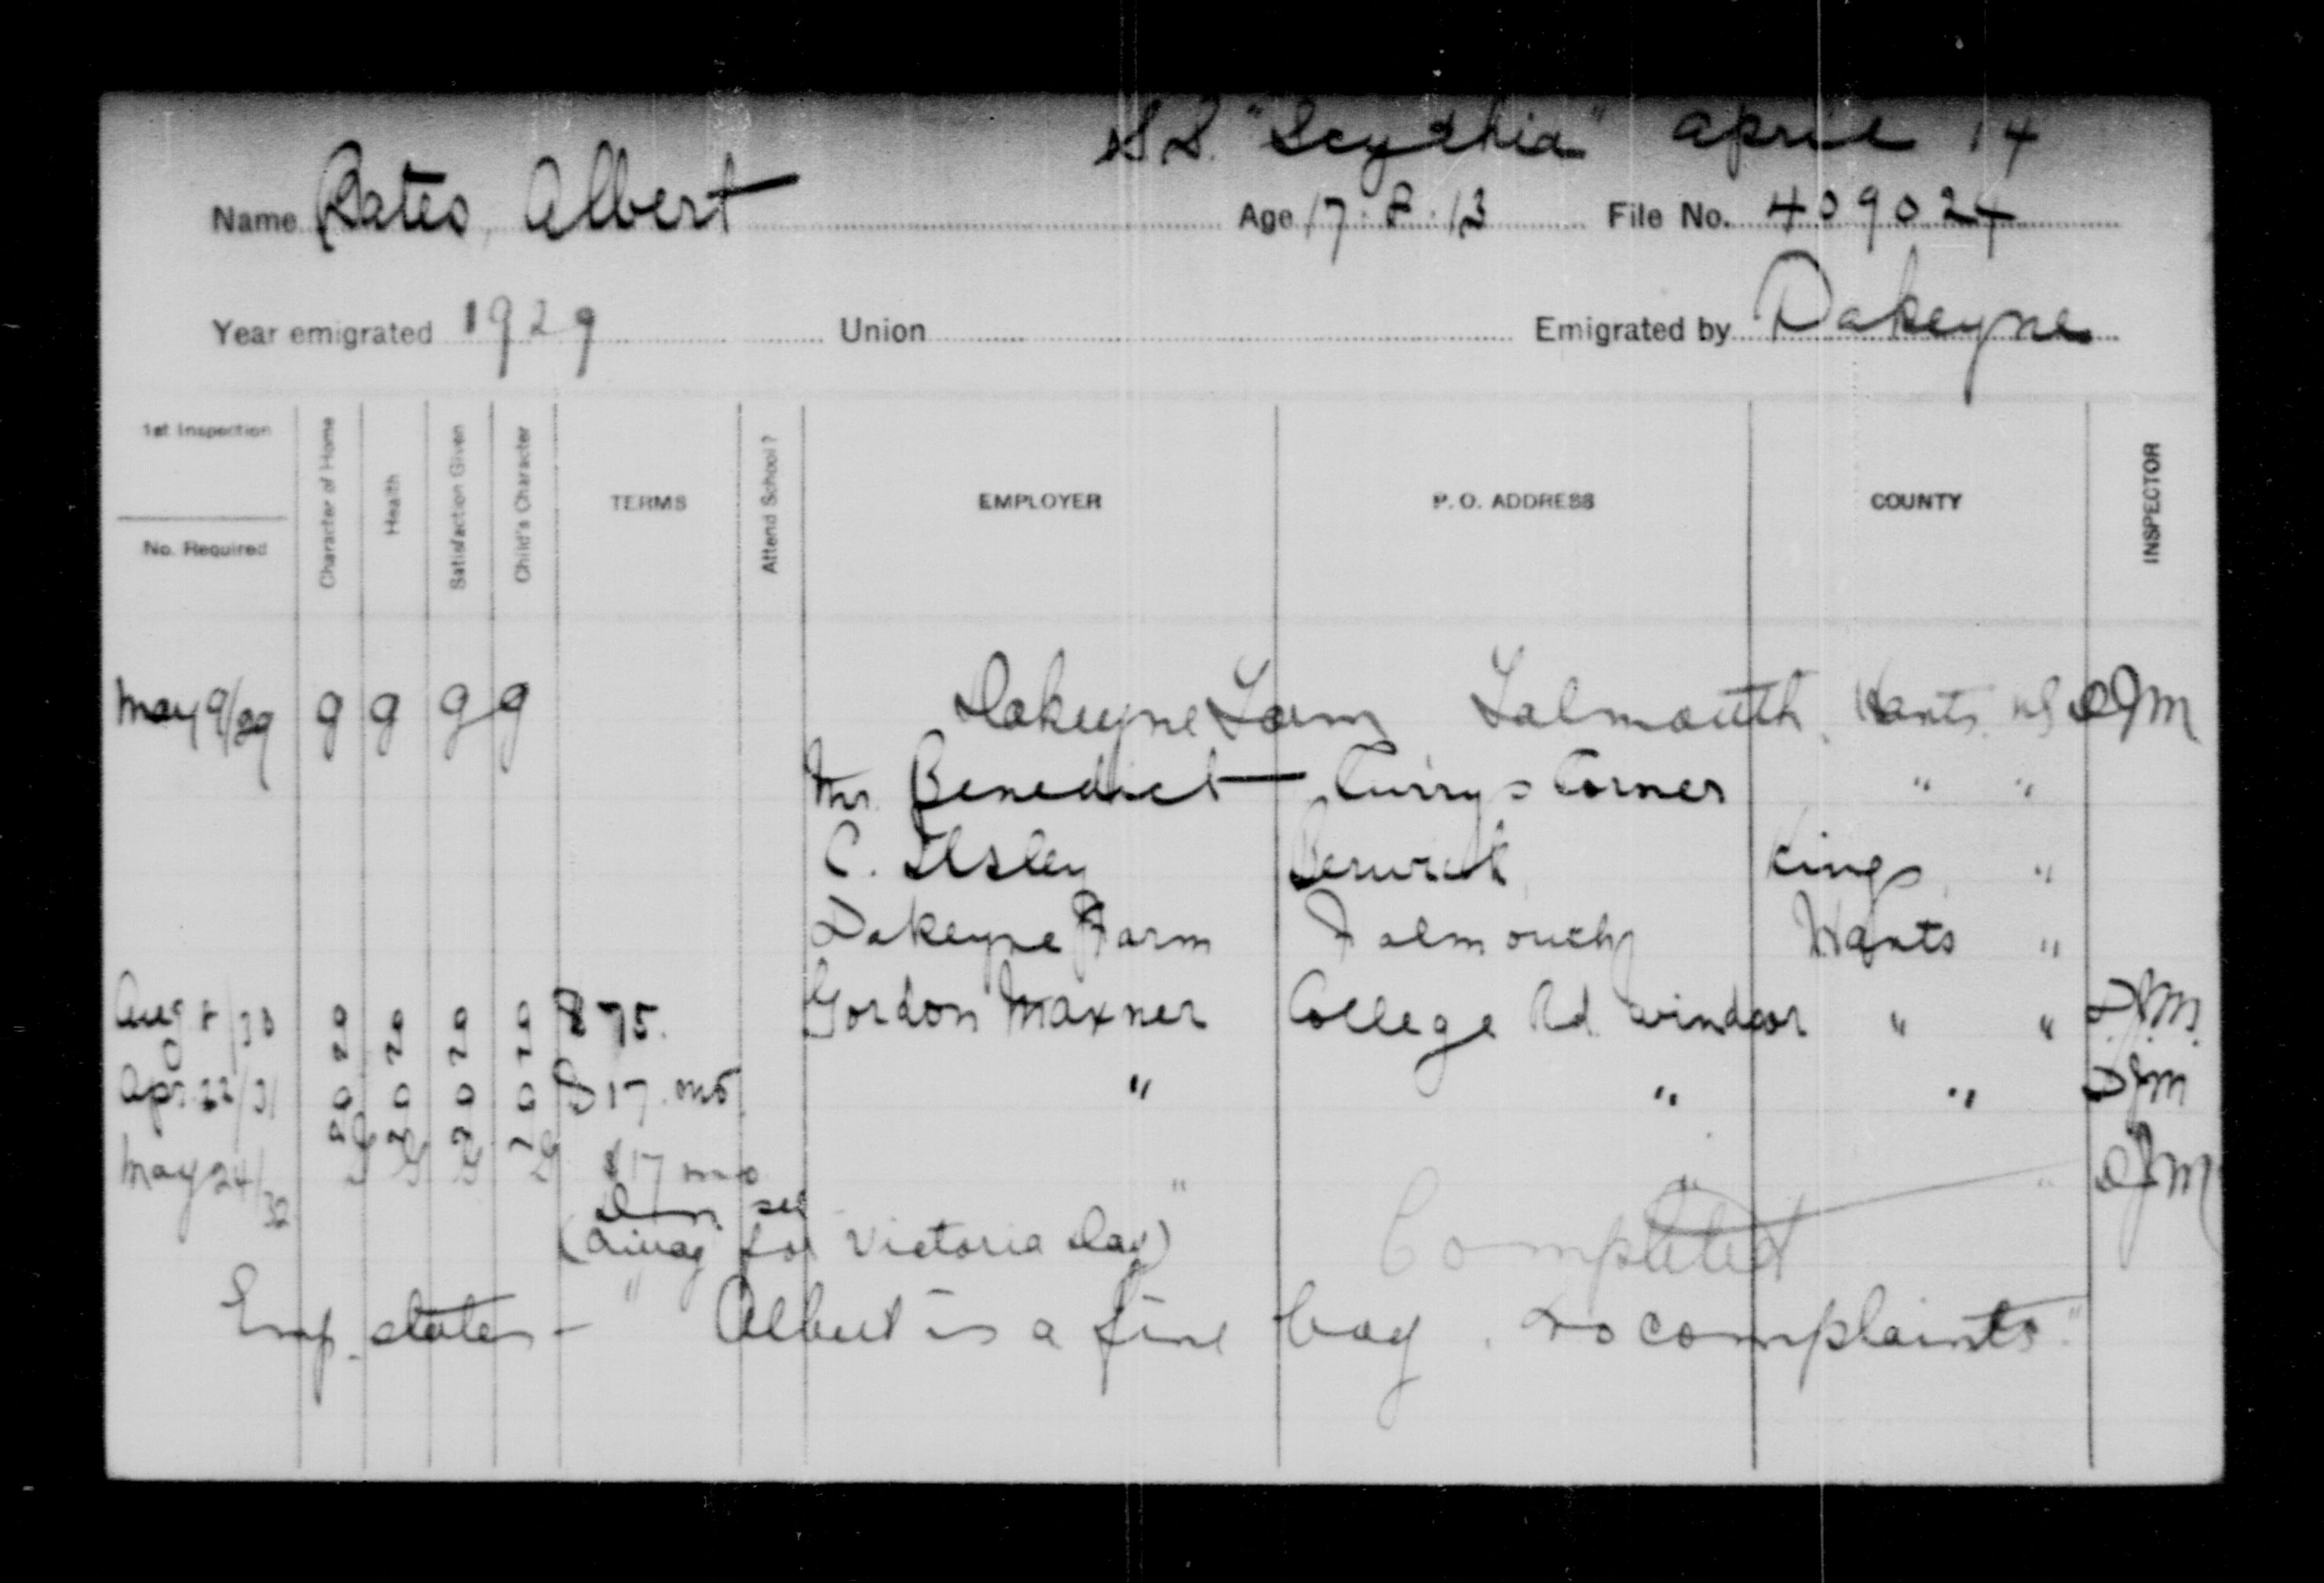 S.S. "Scythia" April 14
Name Bates, Albert Age 17.8.13 File No. 409024
Year emigrated 1929 Union Emigrated by Dakeyne
1st Inspection
No. Required
Character of Home
Health
Satisfaction Given
Child's Character
TERMS
Attend School?
EMPLOYER
P. O. ADDRESS
COUNTY
INSPECTOR
May 9/29 g g g g Dakeyne Farm Falmouth, Hants. NS DJM
Mr. Benedict Currys Corner " "
C. Ilsley Berwick, Kings, "
Dakeyne Farm Falmouth Hants "
Aug 8/30 $75. Gordon Maxner College Rd. Windsor " " D.J.M.
Apr. 22/31 $17. mo " " " DJM
May 24/32 G G G G $17 mo " " " DJM
(away for Victoria Day)
Completed
Emp. states - "Albert is a fine boy. No complaints."